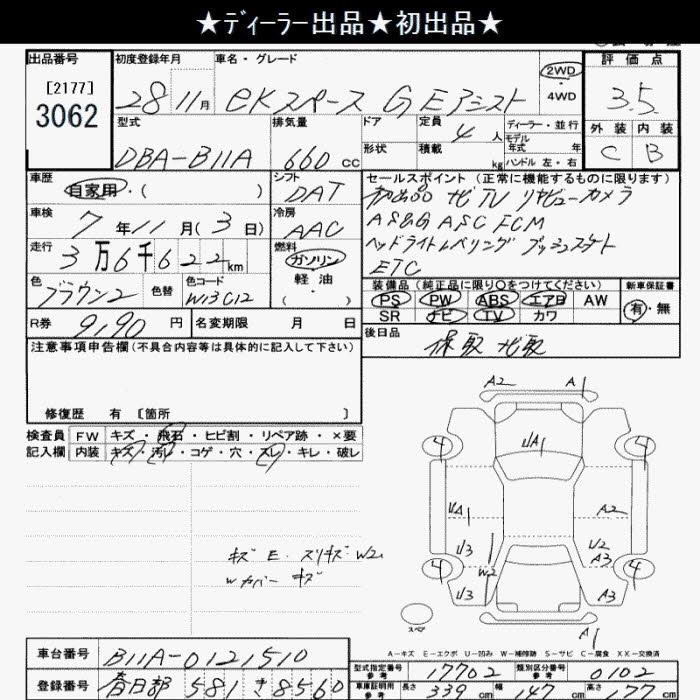 ★ディーラー出品★初出品★
出品番号 初度登録年月 車名・グレード 評価点
[2177]
3062
28 11月 eKスペース G Eアシスト 2WD 4WD 3.5
型式 排気量 ドア 定員 4人 ディーラー・並行 外装 内装
DBA-B11A 660cc 形状 積載 kg モデル年式 年 ハンドル 左・右 C B
車歴 シフト セールスポイント (正常に機能するものに限ります)
自家用・( ) DAT 初出品 ナビ TV リヤビューカメラ
車検 7年11月(3日) 冷房 AAC AS&G ASC FCM
走行 3万6千622km 燃料 ガソリン 軽油 ( ) ヘッドライトレベリング プッシュスタート
ETC
色 ブラウン2 色替 色コード W13C12
装備品 (純正品に限り○をつけてください) 新車保証書
PS PW ABS エアB AW 有・無
SR ナビ TV カワ
R券 9190円 名変期限 月 日 後日品
保取 ナビ取
注意事項申告欄 (不具合内容等は具体的に記入して下さい)
修復歴 有 〔箇所 〕
検査員 FW キズ・飛石・ヒビ割・リペア跡・×要
記入欄 内装 キズ・汚レ・コゲ・穴・スレ・キレ・破レ
A2 A1
4 U/A1 4
U/A1 A2
U3 U2
A3
4 W2 4
U3 A3
キズ E・スリキズ W2
Wカバー キズ
スペア A1
A-キズ E-エクボ U-凹み W-補修跡 S-サビ C-腐食 XX-交換済
車台番号 B11A-0121510
型式指定番号 参考 17702 類別区分番号 参考 0102
登録番号 春日部 581 き 8560
車庫証明用 参考 長さ 339cm 幅 147cm 高さ 177cm